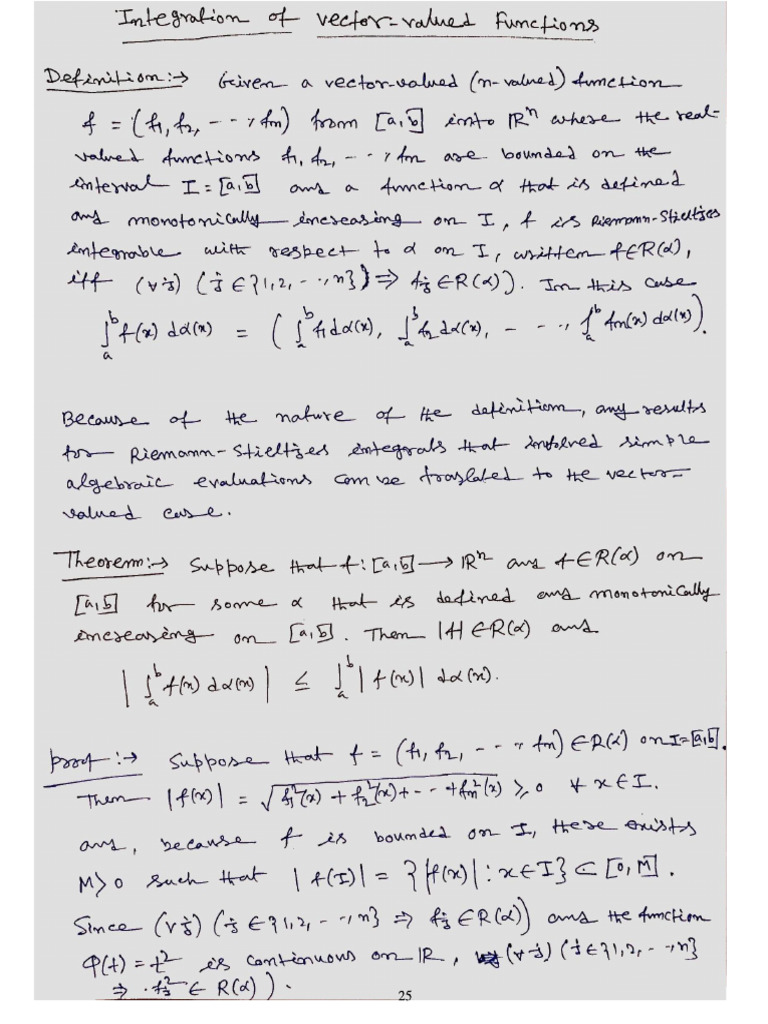 Integration of vector-valued Functions
Definition:→ Given a vector-valued (n-valued) function
f = (f₁, f₂, -- -, fn) from [a,b] into ℝⁿ where the real-
valued functions f₁, f₂, -- -, fn are bounded on the
interval I = [a,b] and a function α that is defined
and monotonically increasing on I, f is Riemann-Stieltjes
integrable with respect to α on I, written f∈R(α),
iff (∀j) (j ∈ {1,2, - -, n}) ⇒ fj ∈ R(α)). In this case
∫ₐᵇ f(x) dα(x) = (∫ₐᵇ f₁dα(x), ∫ₐᵇ f₂ dα(x), - - - -, ∫ₐᵇ fn(x) dα(x)).
Because of the nature of the definition, any results
for Riemann-Stieltjes integrals that involved simple
algebraic evaluations can be traslated to the vector-
valued case.
Theorem:→ Suppose that f: [a,b] → ℝⁿ and f∈R(α) on
[a,b] for some α that is defined and monotonically
increasing on [a,b]. Then |f| ∈ R(α) and
|∫ₐᵇ f(x) dα(x)| ≤ ∫ₐᵇ |f(x)| dα(x).
proof:→ Suppose that f = (f₁, f₂, - - -, fn) ∈ R(α) on I=[a,b].
Then |f(x)| = √(f₁²(x) + f₂²(x) + - - + fn²(x)) ≥ 0 ∀ x ∈ I.
and, because f is bounded on I, there exists
M>0 such that |f(I)| = {|f(x)| : x∈I} ⊂ [0, M].
Since (∀j) (j ∈ {1,2, - -, n} ⇒ fj ∈ R(α)) and the function
φ(t) = t² is continuous on ℝ, (∀j) (j∈{1,2, - -, n}
⇒ fj² ∈ R(α)).
25